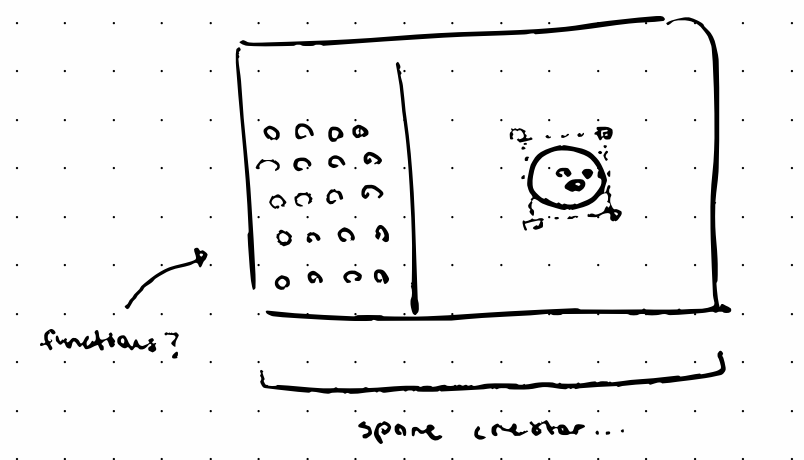 functions?
spore creator...